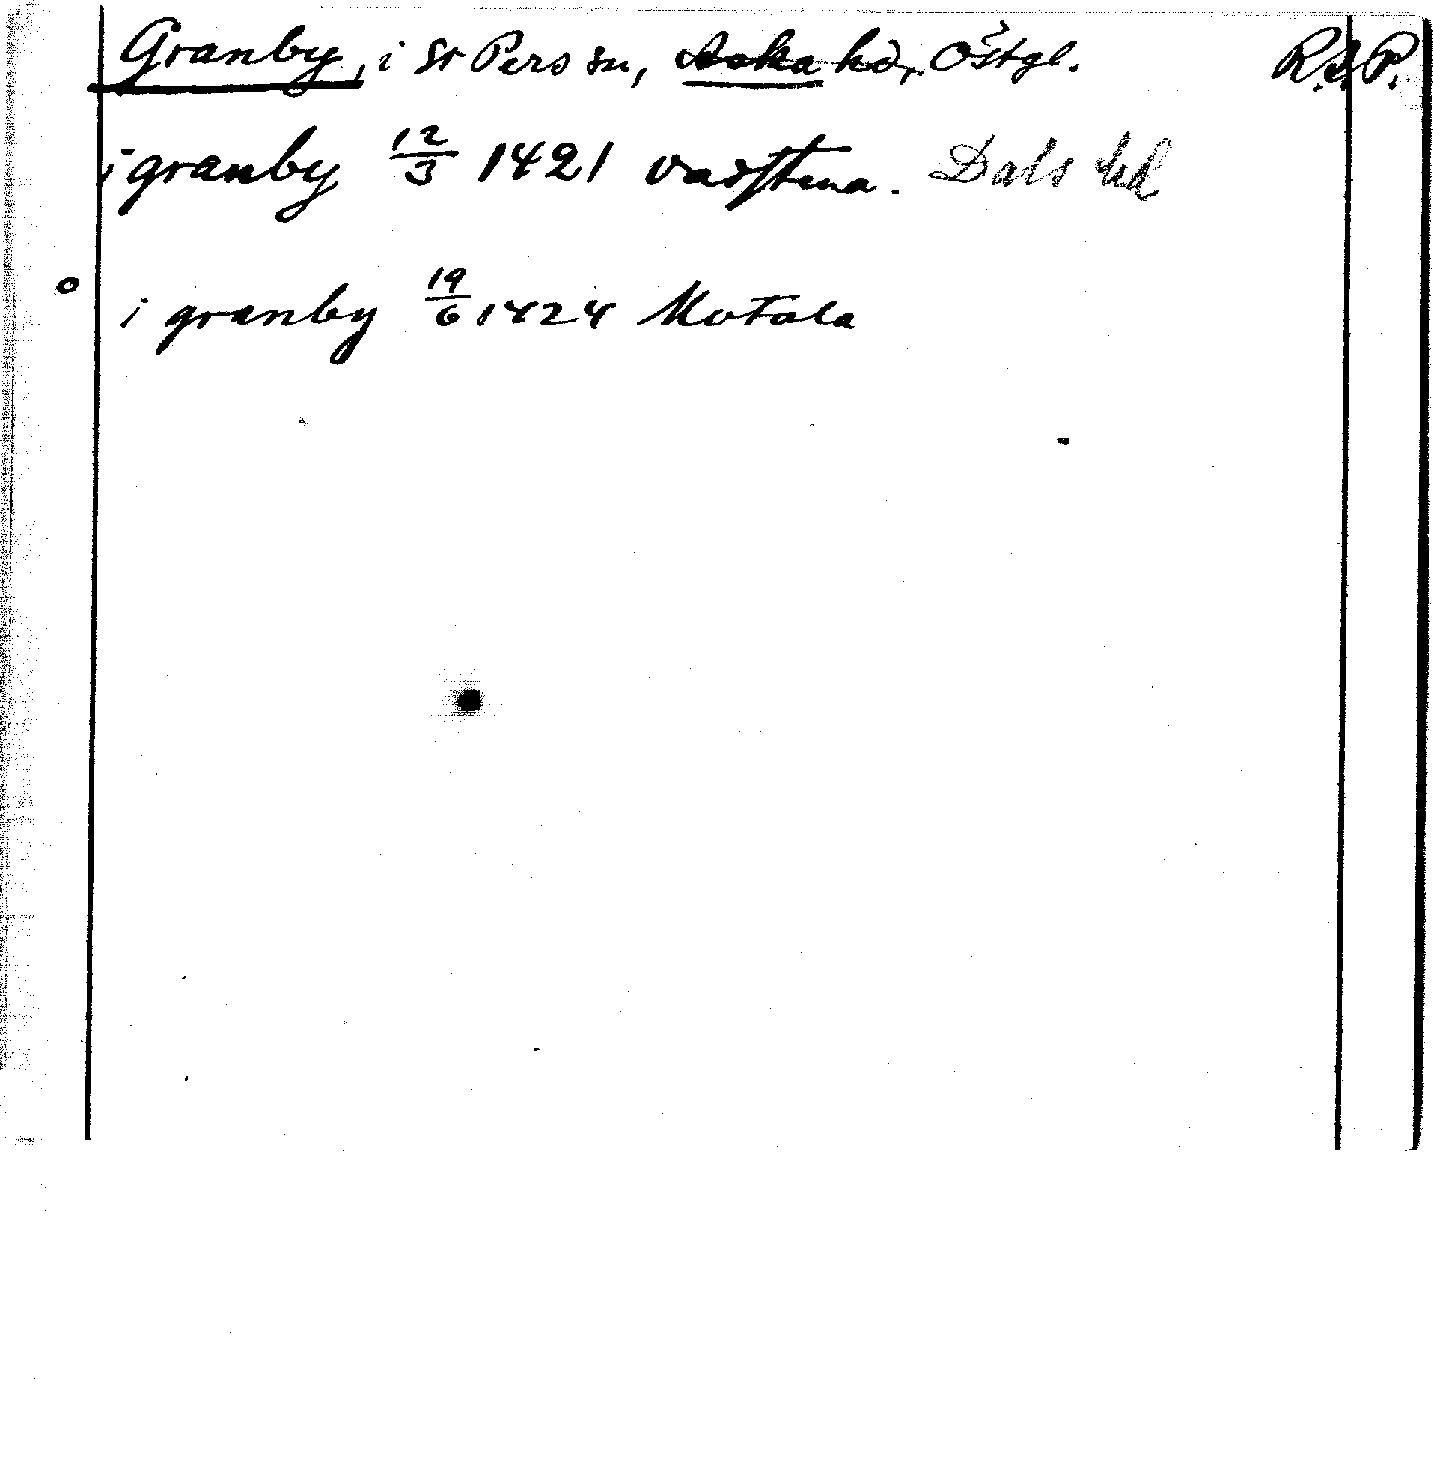 Granby, i St Pers sn, Aska hd, Östgl. R.A.P.
i granby 12/3 1421 vadstena. Dals hd
o i granby 19/6 1424 Motala